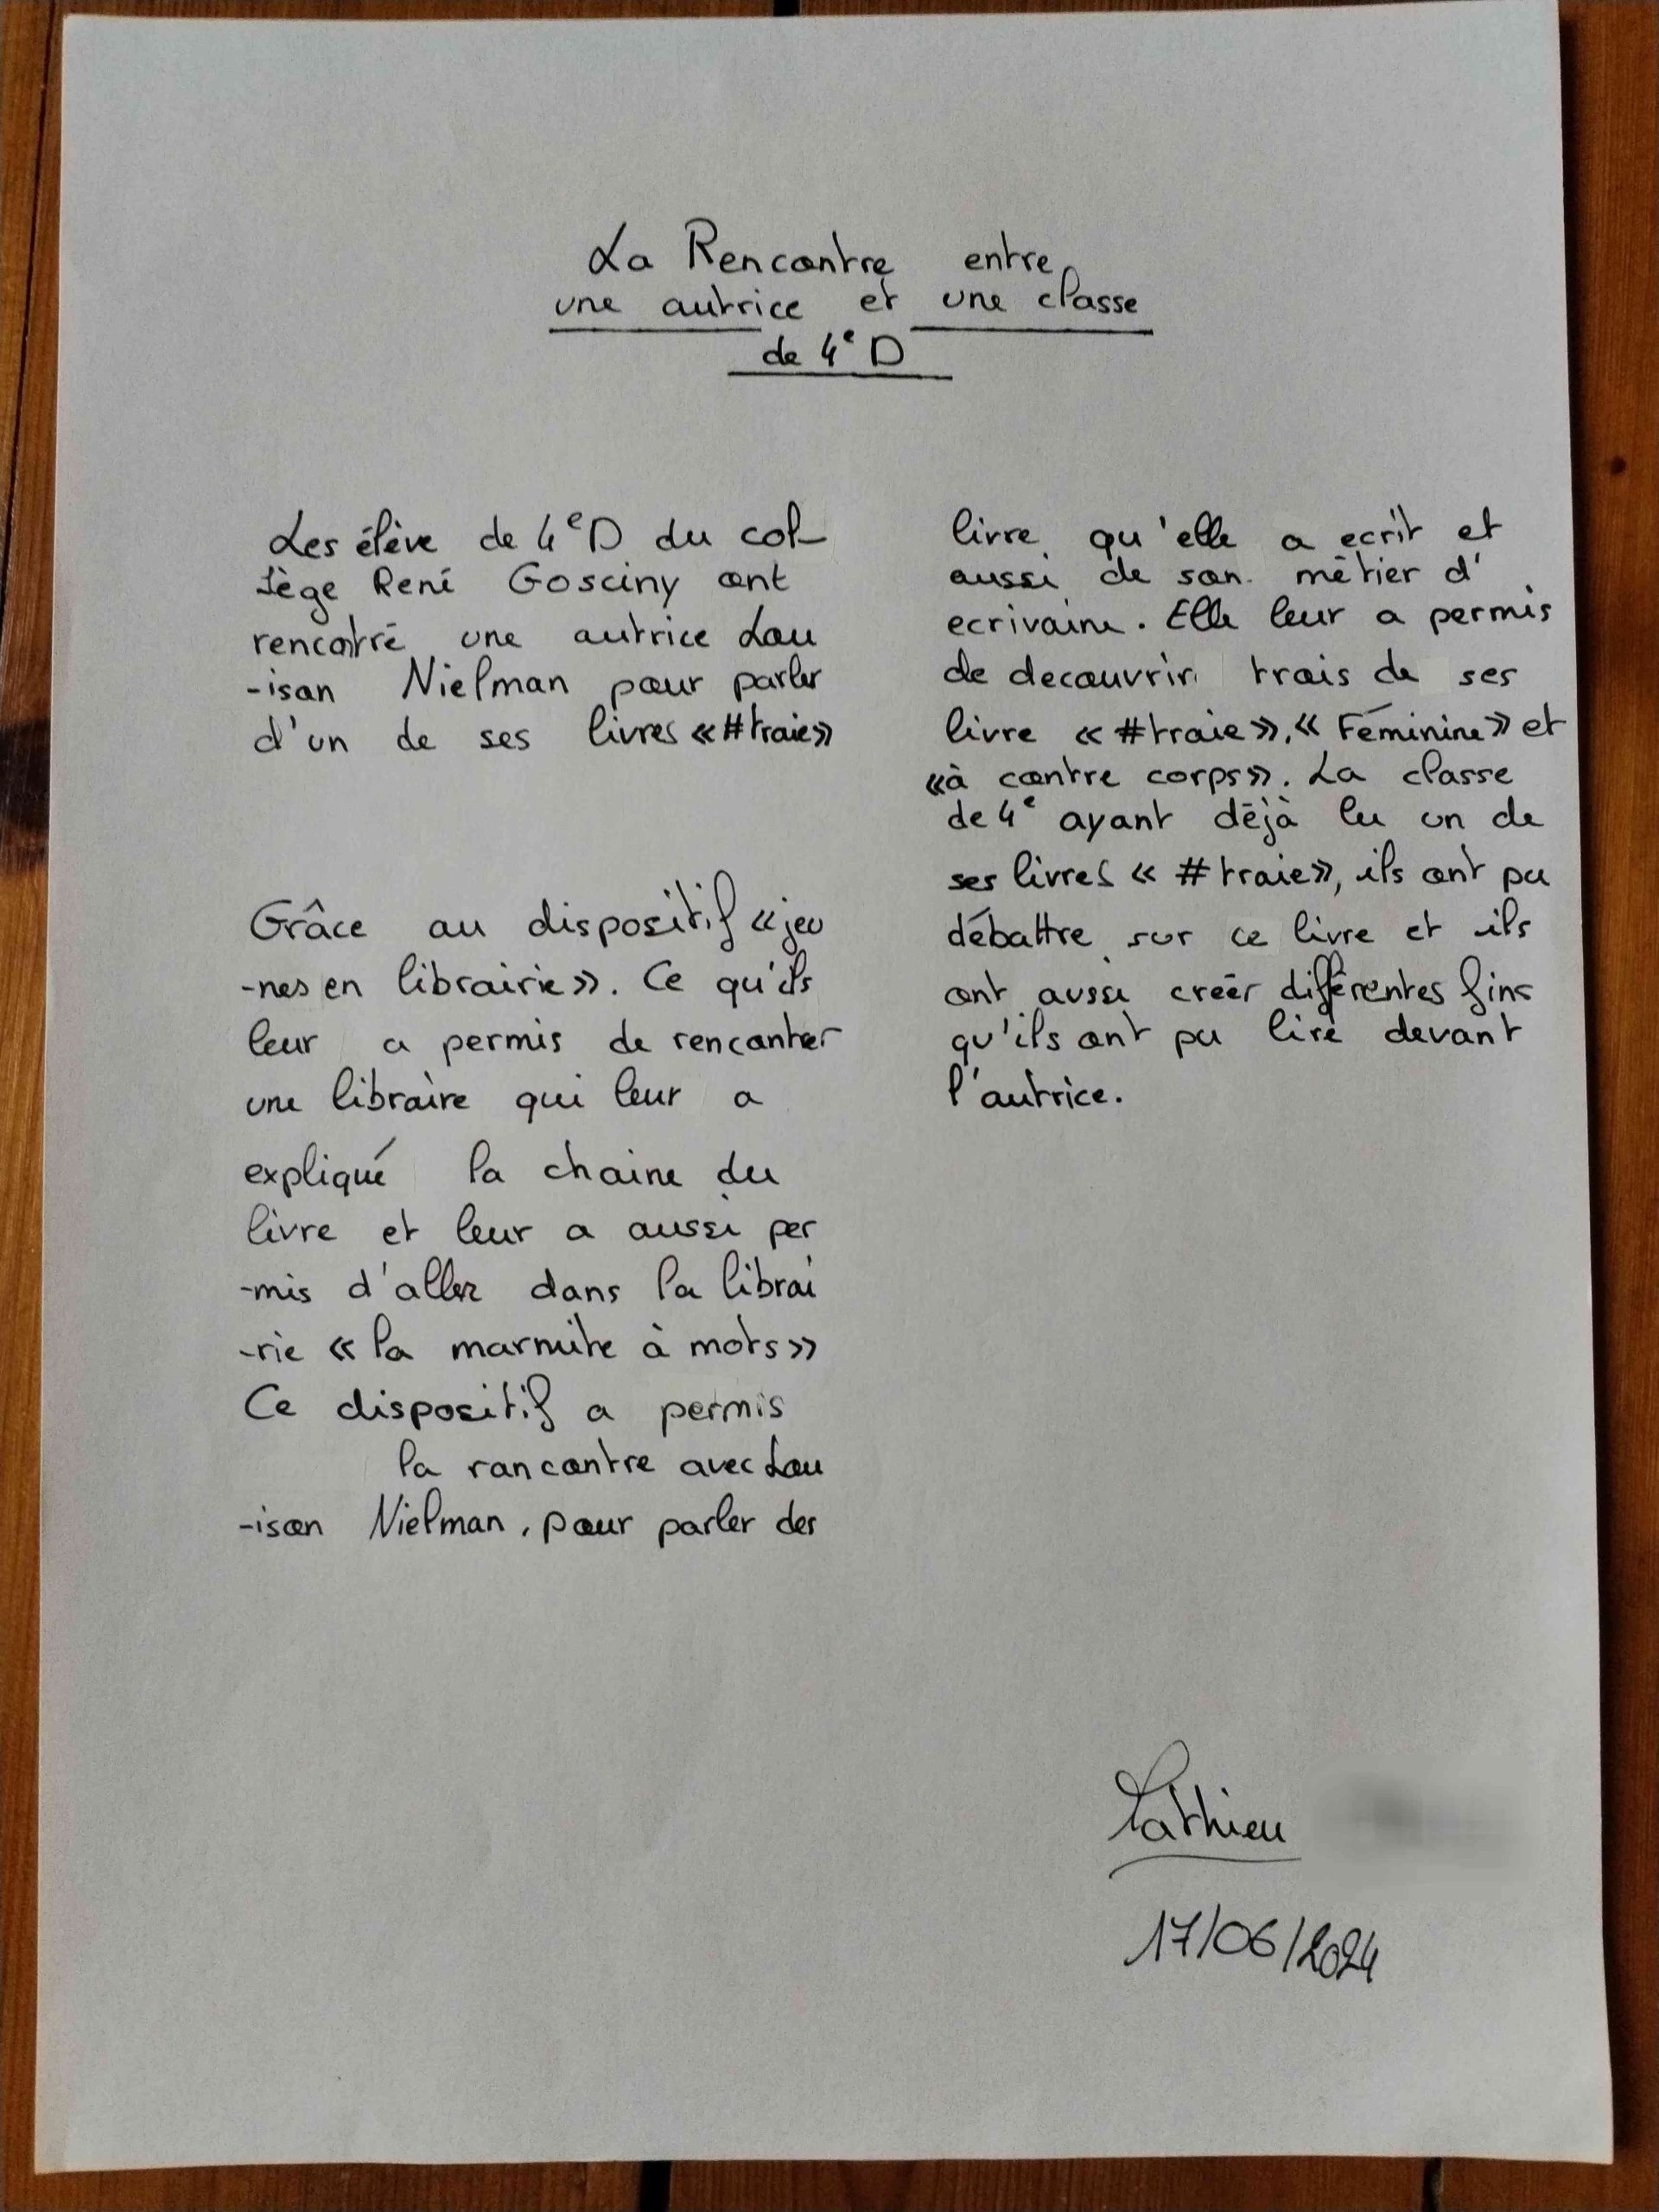 La Rencontre entre
une autrice et une classe
de 4e D
Les élève de 4e D du col-
lège René Gosciny ont
rencotré une autrice Lou
-ison Nielman pour parler
d'un de ses livres «#traie»
Grâce au dispositif «jeu
-nes en librairie». Ce qu'ils
leur a permis de rencontrer
une libraire qui leur a
expliqué la chaine du
livre et leur a aussi per
-mis d'aller dans la librai
-rie «la marmite à mots»
Ce dispositif a permis
la rancontre avec Lou
-ison Nielman, pour parler des
livre qu'elle a ecrit et
aussi de son métier d'
ecrivaine. Elle leur a permis
de decouvrir trois de ses
livre «#traie», «Féminine» et
«à contre corps». La classe
de 4e ayant déjà lu un de
ses livres «#traie», ils ont pu
débattre sur ce livre et ils
ont aussi créer différentes fins
qu'ils ont pu lire devant
l'autrice.
Mathieu
17/06/2024